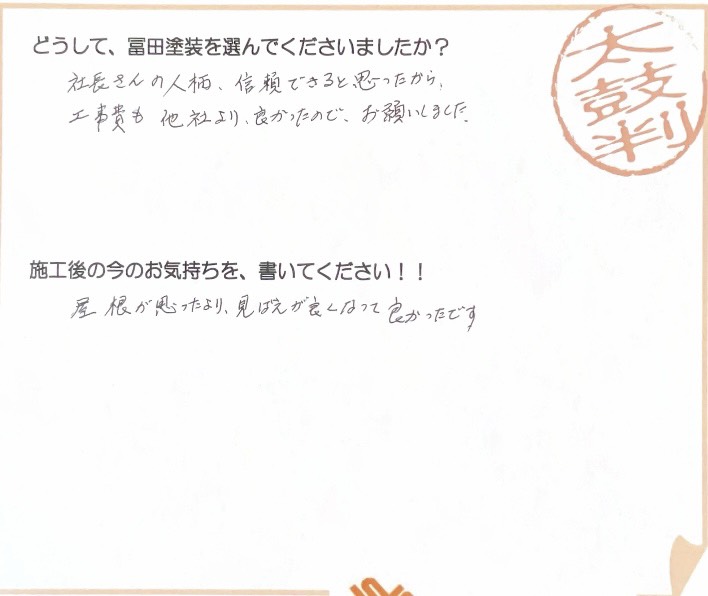 どうして、冨田塗装を選んでくださいましたか？
太鼓判
社長さんの人柄、信頼できると思ったから、
工事費も他社より、良かったので、お願いしました。
施工後の今のお気持ちを、書いてください！！
屋根が思ったより、見ばえが良くなって良かったです